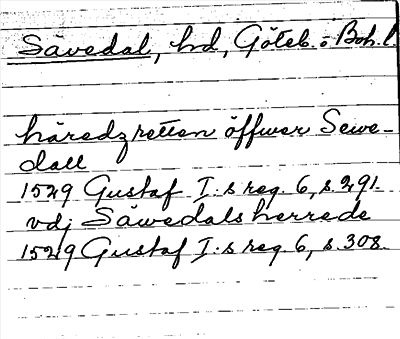 Sävedal, hd, Göteb. o Boh. l.
häredzretten öffwer Sewe-
dall
1529 Gustaf I:s reg. 6, s. 291.
vdj Säwedals herrede
1529 Gustaf I:s reg. 6, s. 308.